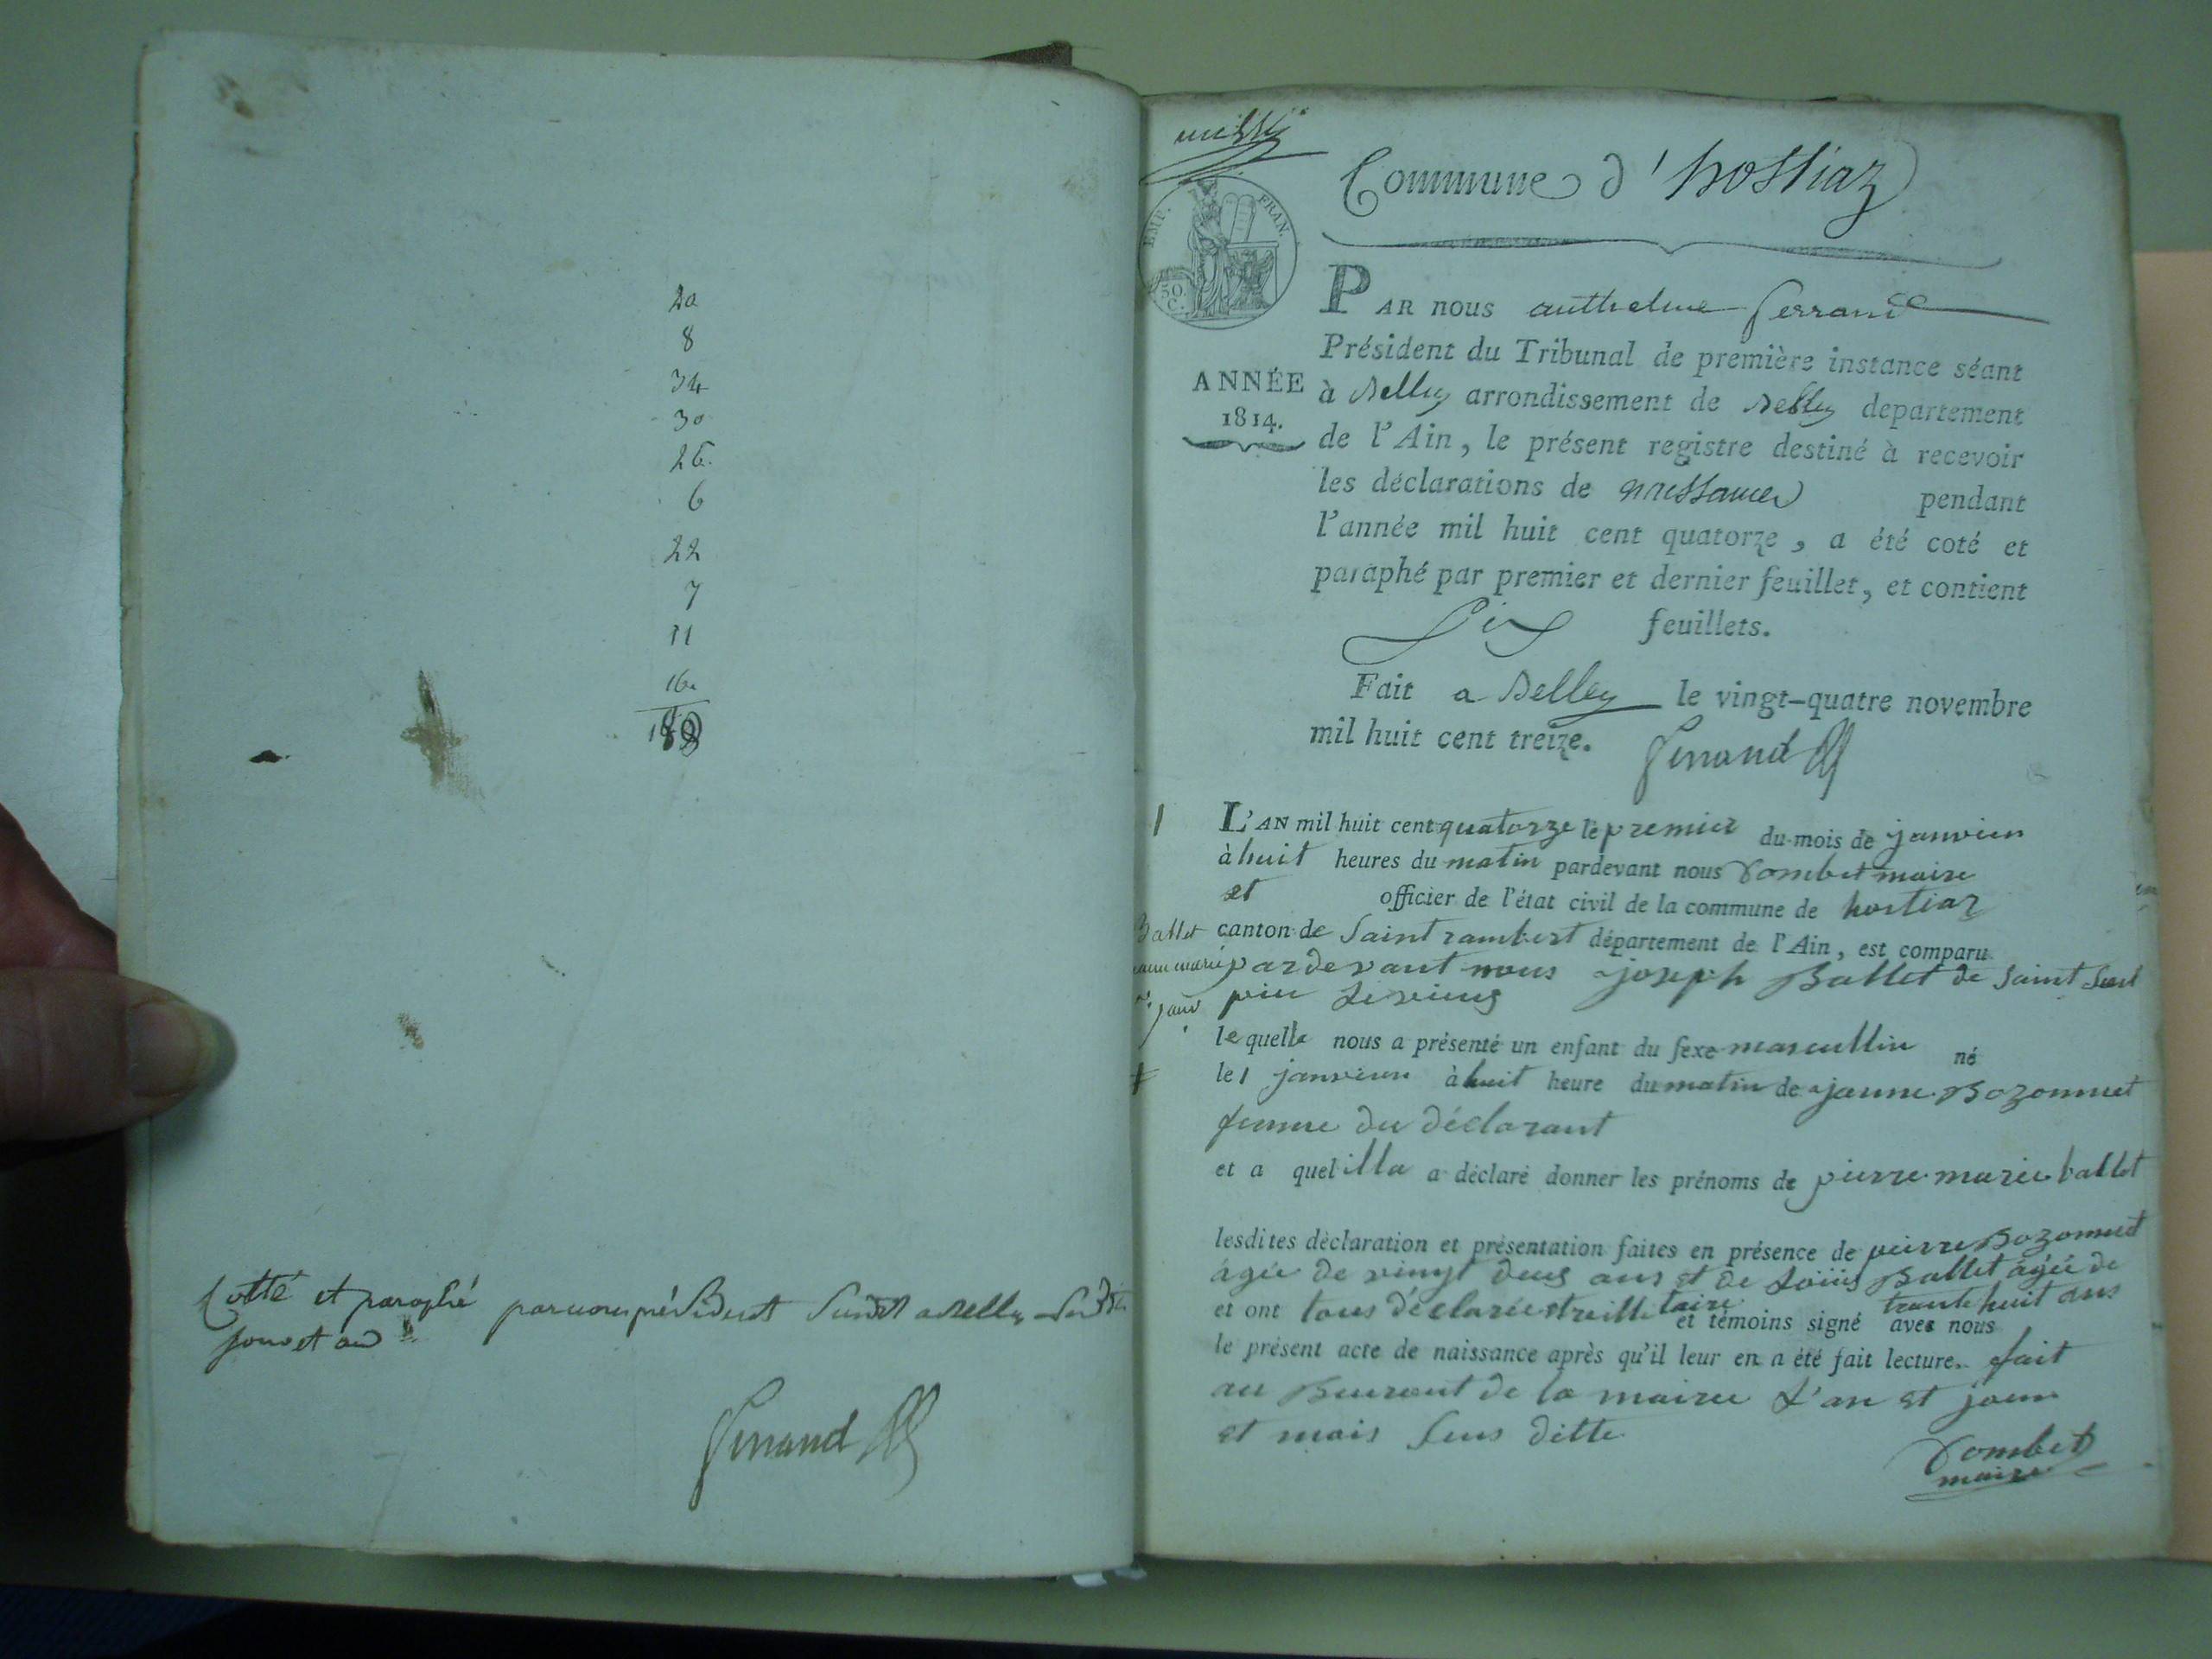 20
8
34
30
26
6
22
7
11
16
180
Cotté et paraphé par nous président susdit a Belley
jour et an
Ferrand
Commune d'hostiaz
EMP. FRAN.
50 C.
ANNÉE
1814.
PAR nous anthelme ferrand
Président du Tribunal de première instance séant
à Belley arrondissement de Belley departement
de l'Ain, le présent registre destiné à recevoir
les déclarations de naissances pendant
l'année mil huit cent quatorze, a été coté et
paraphé par premier et dernier feuillet, et contient
Six feuillets.
Fait a Belley le vingt-quatre novembre
mil huit cent treize. Ferrand
1
L'AN mil huit cent quatorze le premier du mois de janvier
à huit heures du matin pardevant nous Dombet maire
et officier de l'état civil de la commune de hostiaz
Ballet
canton de Saint rambert département de l'Ain, est comparu
pardevant nous joseph Ballet de Saint
le quelle nous a présenté un enfant du sexe masculline né
le 1 janvier à huit heure du matin de jeanne Bozonnet
femme du déclarant
et a quel illa a déclaré donner les prénoms de pierre marie ballet
lesdites déclaration et présentation faites en présence de pierre Bozonnet
agée de vingt deus ans et de Loüis Ballet agée de
trante huit ans
et ont tous déclarée et témoins signé avec nous
le présent acte de naissance après qu'il leur en a été fait lecture. fait
au Bureaut de la mairie L'an et jour
et mois sus ditte
Dombet
maire